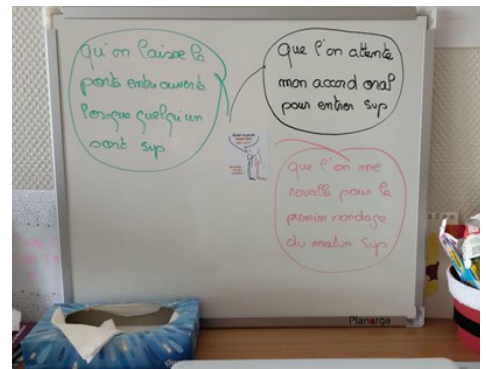 qu'on laisse la
porte entre ouverte
lorsque quelqu'un
sort svp
que l'on attente
mon accord oral
pour entrer svp
que l'on me
reveille pour le
premier sondage
du matin svp
Planorga